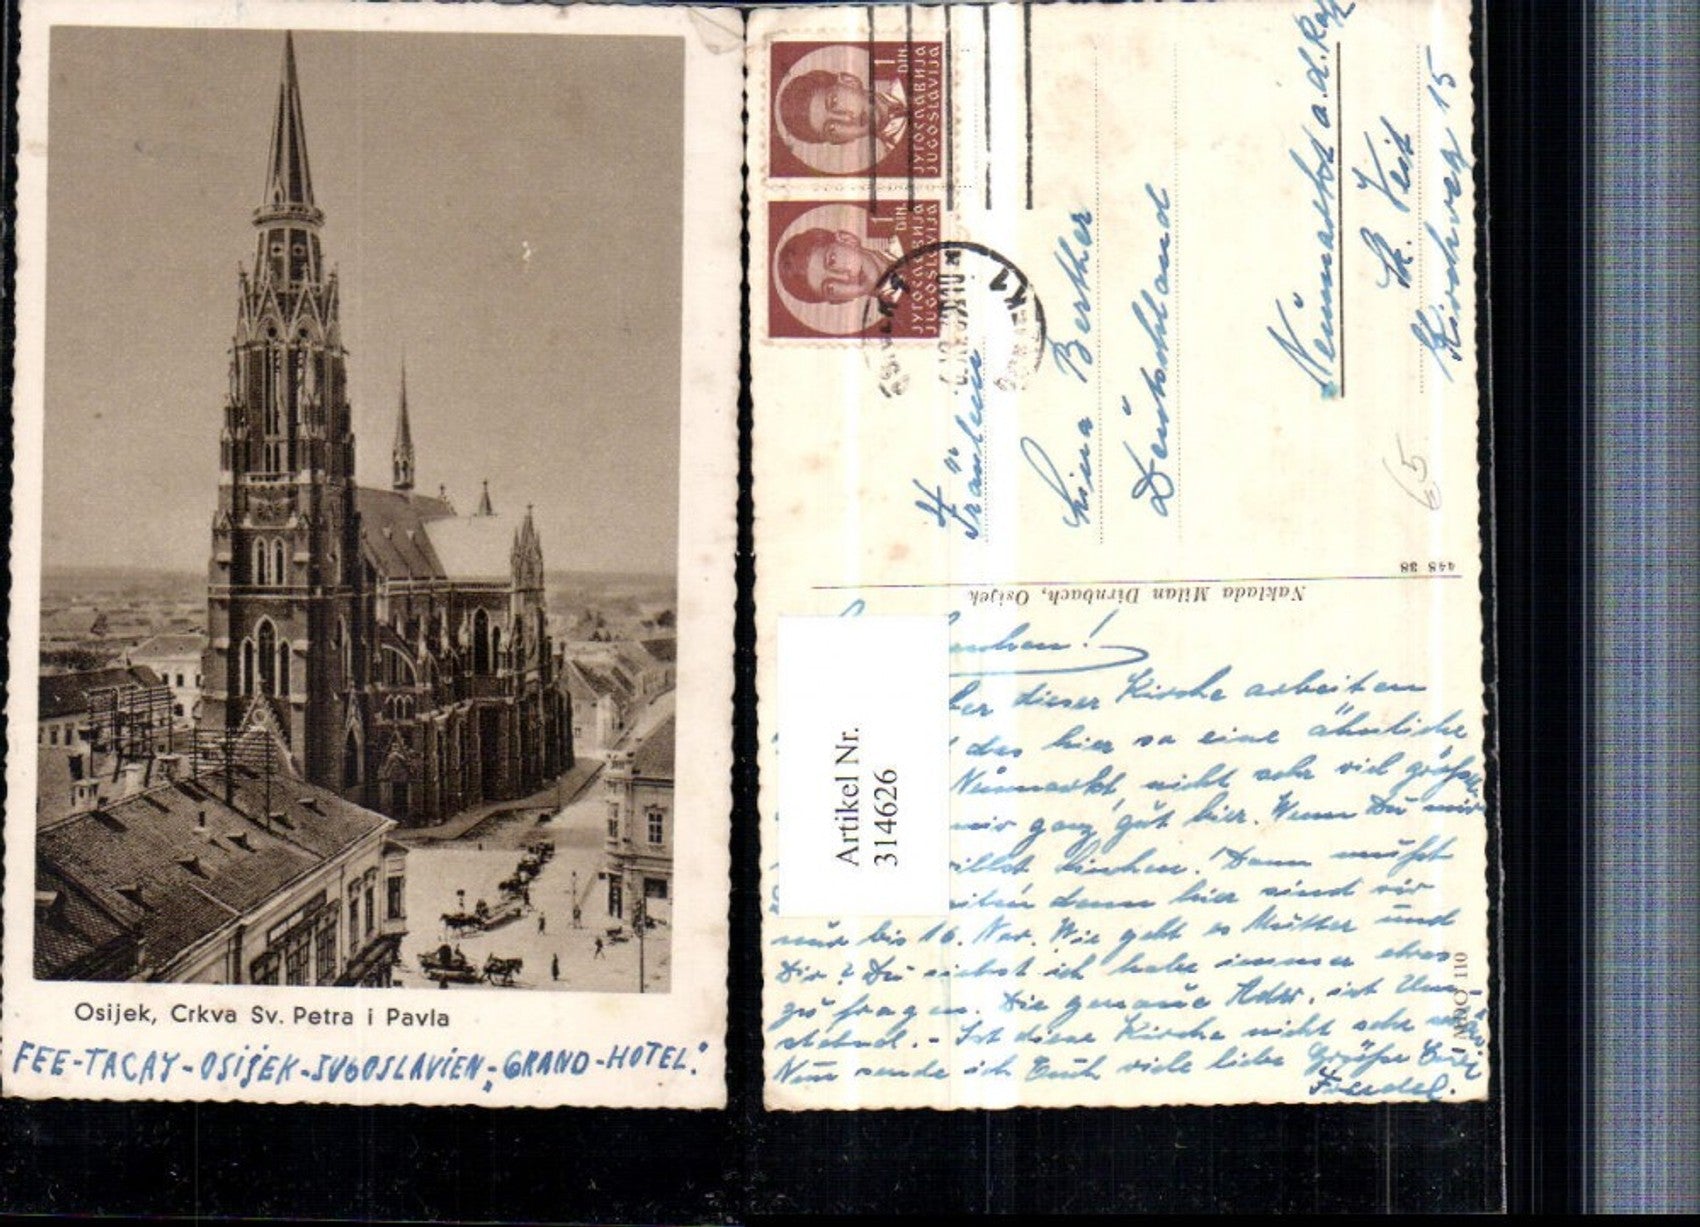 Osijek, Crkva Sv. Petra i Pavla
FEE-TACAY-OSIJEK-JUGOSLAVIEN-„GRAND-HOTEL“
1
DIN
ЈУГОСЛАВИЈА
JUGOSLAVIJA
1
DIN.
ЈУГОСЛАВИЈА
JUGOSLAVIJA
Fräulein
Lina Berther
Deutschland
Neumarkt a.d. Rott
St. Veit
Kirchweg 15
65
448 38
Naklada Milan Dirnbach, Osijek
Artikel Nr.
314626
dieser Kirche arbeiten
das hier so eine ähnliche
Neumarkt, nicht sehr viel größer
mir ganz gut hier. Wenn Du mir
willst Linchen! Dann mußt
denn hier sind wir
nur bis 16. Nov. Wie geht es Mutter und
Dir? Du siehst ich habe immer etwas
zu fragen. Die genaue Adr. ist Um-
stehend. - Ist diese Kirche nicht sehr
Nun sende ich Euch viele liebe Grüße Euer
MIMO 110